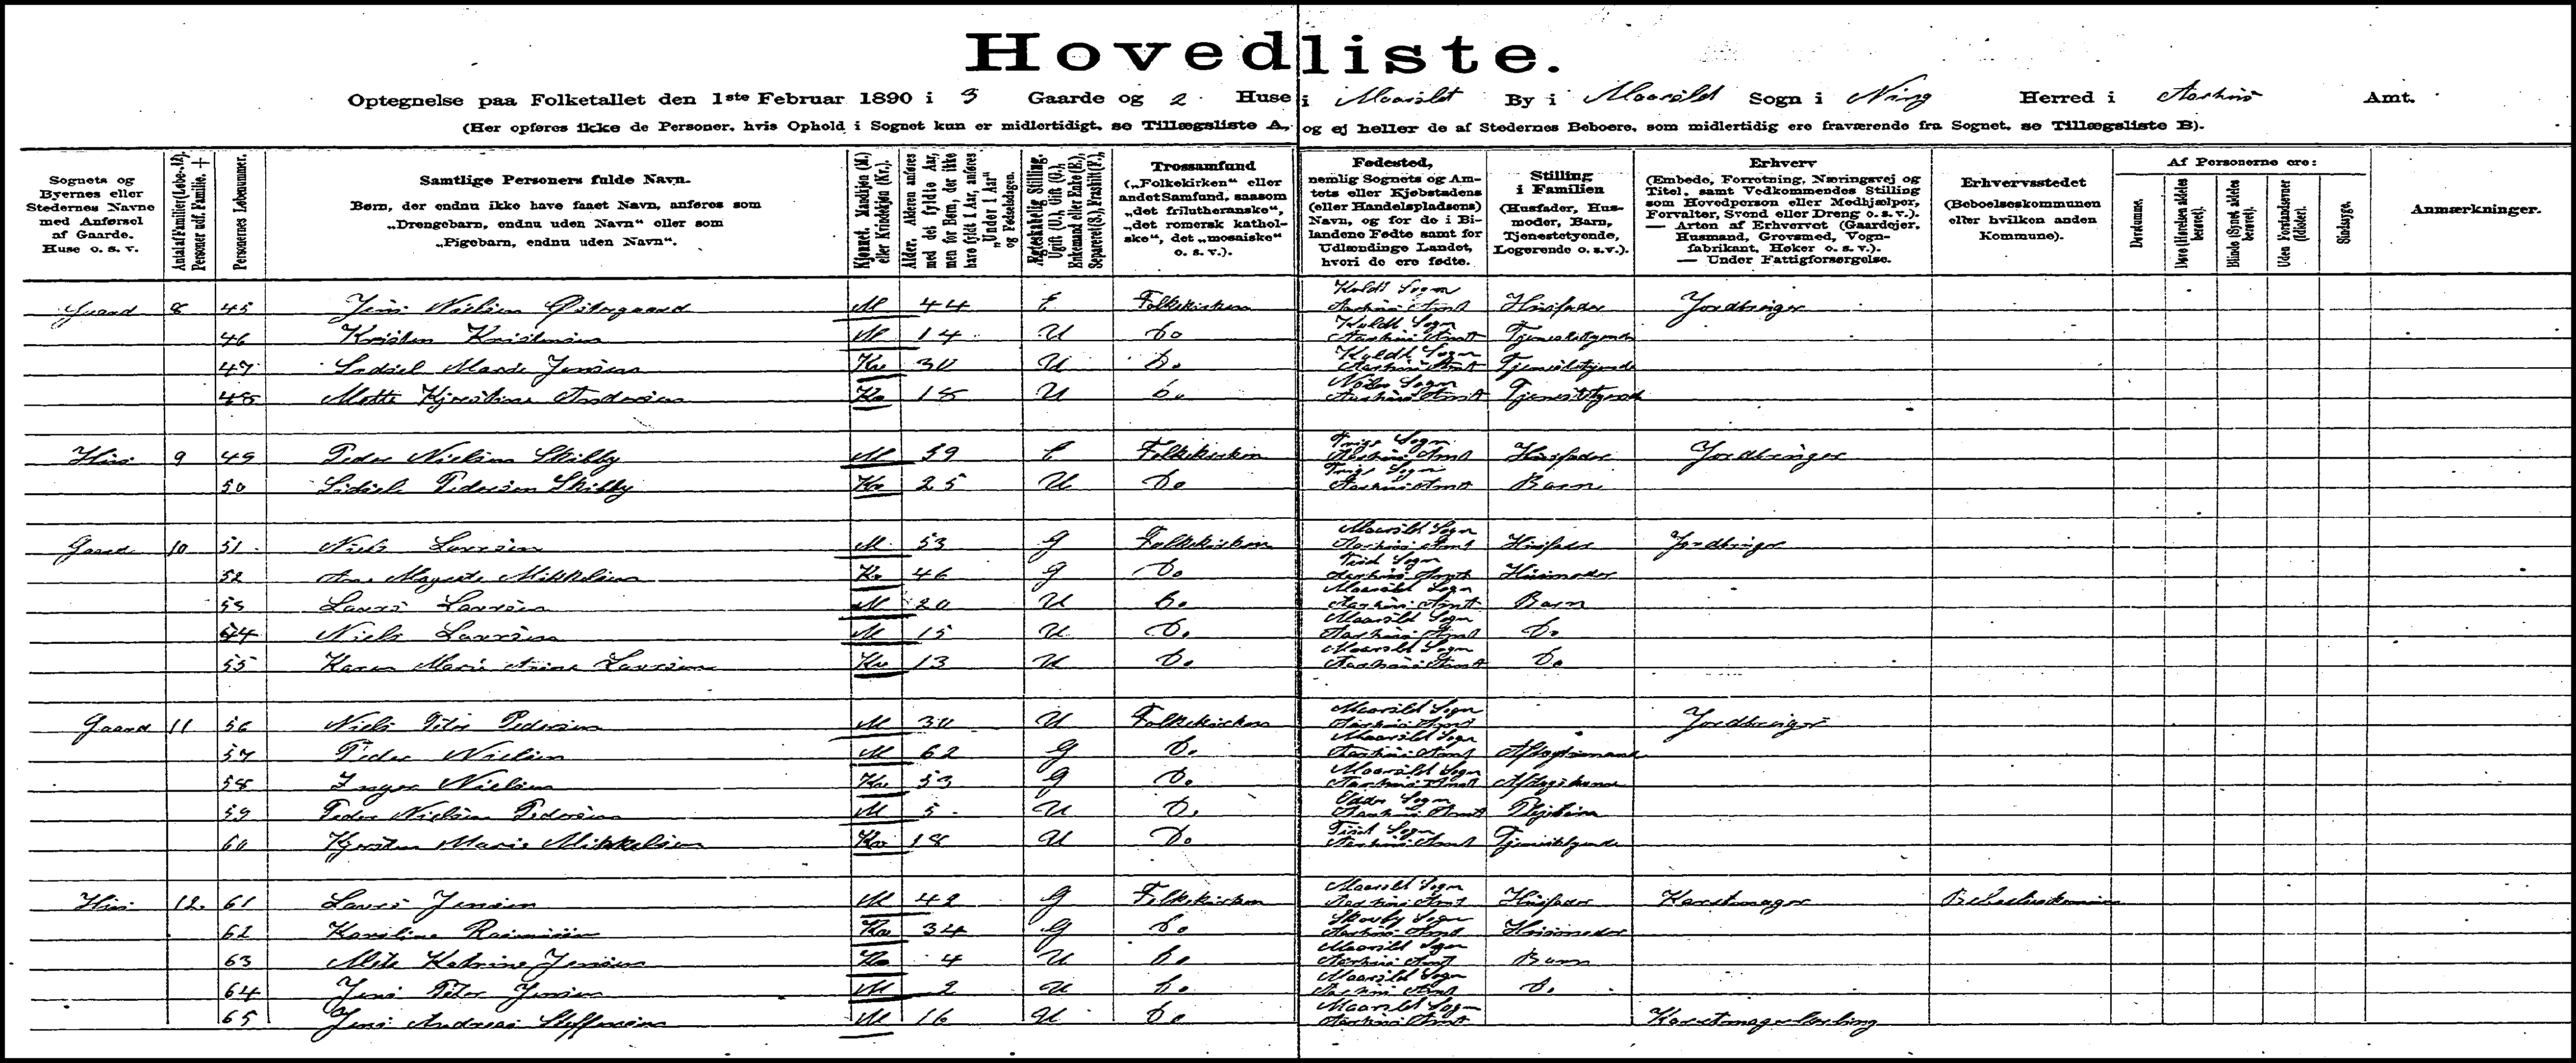 Hovedliste.
Optegnelse paa Folketallet den 1ste Februar 1890 i 3 Gaarde og 2 Huse i Maarslet By i Maarslet Sogn i Ning Herred i Aarhus Amt.
(Her opføres ikke de Personer, hvis Ophold i Sognet kun er midlertidigt, se Tillægsliste A, og ej heller de af Stedernes Beboere, som midlertidig ere fraværende fra Sognet, se Tillægsliste B).
Sognets og Byernes eller Stedernes Navne med Anførsel af Gaarde, Huse o. s. v.
Antal af Familier (Løbe-№). Personer udf. Familie. +
Personernes Løbenummer.
Samtlige Personers fulde Navn.
Børn, der endnu ikke have faaet Navn, anføres som „Drengebarn, endnu uden Navn“ eller som „Pigebarn, endnu uden Navn“.
Kjønnet. Mandkjøn (M.) eller Kvindekjøn (Kv.).
Alder. Alderen anføres med det fyldte Aar, men for Børn, der ikke have fyldt 1 Aar, anføres „Under 1 Aar“ og Fødselsdagen.
Ægteskabelig Stilling. Ugift (U.), Gift (G.), Enkemand eller Enke (E.), Separeret (S.), Fraskilt (F.).
Trossamfund („Folkekirken“ eller andet Samfund, saasom „det frilutheranske“, „det romersk katholske“, det „mosaiske“ o. s. v.).
Fødested, nemlig Sognets og Amtets eller Kjøbstadens (eller Handelspladsens) Navn, og for de i Bilandene Fødte samt for Udlændinge Landet, hvori de ere fødte.
Stilling i Familien (Husfader, Husmoder, Barn, Tjenestetyende, Logerende o. s. v.).
Erhverv (Embede, Forretning, Næringsvej og Titel, samt Vedkommendes Stilling som Hovedperson eller Medhjælper, Forvalter, Svend eller Dreng o. s. v.). — Arten af Erhvervet (Gaardejer, Husmand, Grovsmed, Vognfabrikant, Høker o. s. v.). — Under Fattigforsørgelse.
Erhvervsstedet (Beboelseskommunen eller hvilken anden Kommune).
Af Personerne ere:
Døvstumme.
Døve (Hørelsen aldeles berøvet).
Blinde (Synet aldeles berøvet).
Uden Forstandsevner (Idioter).
Sindssyge.
Anmærkninger.
Gaard 8 45 Jens Nielsen Østergaard M 44 E Folkekirken Koldt Sogn Aarhus Amt Husfader Jordbruger
46 Kristen Kristensen M 14 U Do Koldt Sogn Aarhus Amt Tjenestetyende
47 Marie Jensen Kv 30 U Do Koldt Sogn Aarhus Amt Tjenestetyende
48 Mette Kjerstine Andersen Kv 18 U Do Sogn Aarhus Amt Tjenestetyende
Hus 9 49 Peder Nielsen Skibby M 59 E Folkekirken Sogn Aarhus Amt Husfader Jordbruger
50 Pedersen Skibby Kv 25 U Do Sogn Aarhus Amt Barn
Gaard 10 51 Niels Laursen M 53 G Folkekirken Maarslet Sogn Aarhus Amt Husfader Jordbruger
52 Ane Magrete Mikkelsen Kv 46 G Do Tiset Sogn Aarhus Amt Husmoder
53 Laurs Laursen M 20 U Do Maarslet Sogn Aarhus Amt Barn
54 Niels Laursen M 15 U Do Maarslet Sogn Aarhus Amt Do
55 Karen Marie Laursen Kv 13 U Do Maarslet Sogn Aarhus Amt Do
Gaard 11 56 Niels Peter Pedersen M 30 U Folkekirken Maarslet Sogn Aarhus Amt Jordbruger
57 Peder Nielsen M 62 G Do Maarslet Sogn Aarhus Amt Aftægtsmand
58 Inger Nielsen Kv 53 G Do Maarslet Sogn Aarhus Amt
59 Peder Nielsen Pedersen M 5 U Do Odder Sogn Aarhus Amt Plejebarn
60 Kjersten Marie Mikkelsen Kv 18 U Do Tiset Sogn Aarhus Amt Tjenestetyende
Hus 12. 61 Laurs Jensen M 42 G Folkekirken Maarslet Sogn Aarhus Amt Husfader Karetmager Beboelseskommunen
62 Karoline Rasmussen Kv 34 G Do Skovby Sogn Aarhus Amt Husmoder
63 Mete Katrine Jensen Kv 4 U Do Maarslet Sogn Aarhus Amt Barn
64 Jens Peter Jensen M 2 U Do Maarslet Sogn Aarhus Amt Do
65 Jens Andreas Steffensen M 16 U Do Maarslet Sogn Aarhus Amt Karetmagerlærling